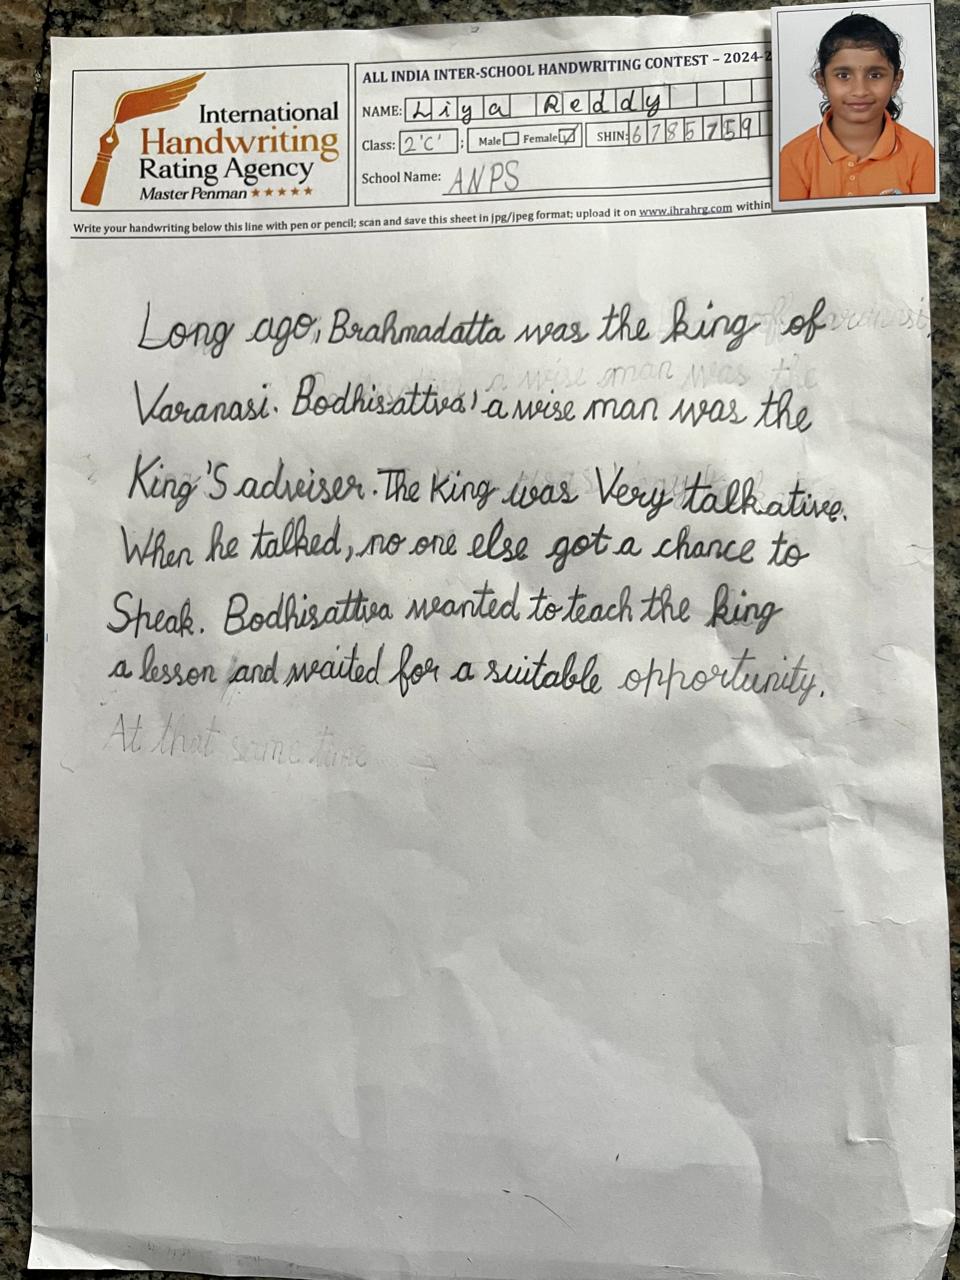 International
Handwriting
Rating Agency
Master Penman ★★★★★
ALL INDIA INTER-SCHOOL HANDWRITING CONTEST – 2024-2
NAME: Liya Reddy
Class: 2'C' : Male Female SHIN: 6785759
School Name: ANPS
Write your handwriting below this line with pen or pencil; scan and save this sheet in jpg/jpeg format; upload it on www.ihrahrg.com within
Long ago, Brahmadatta was the king of
Varanasi. Bodhisattva, a wise man was the
King'S adviser. The King was Very talkative.
When he talked, no one else got a chance to
Speak. Bodhisattva wanted to teach the king
a lesson and waited for a suitable opportunity.
At that same time